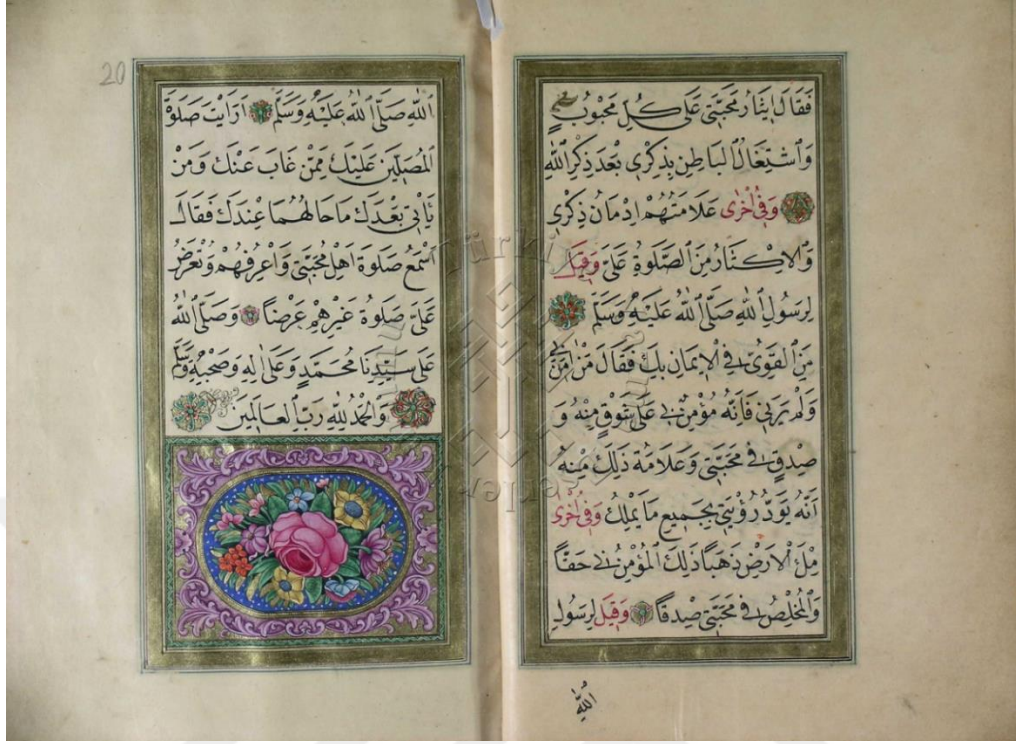 فَقَالَ اِيثَارُ مَحَبَّتِي عَلَى كُلِّ مَحْبُوبٍ
وَاشْتِغَالُ الْبَاطِنِ بِذِكْرِي بَعْدَ ذِكْرِ اللّٰهِ
وَفِي اُخْرٰى عَلَامَتُهُمْ اِدْمَانُ ذِكْرِي
وَالْاِكْثَارُ مِنَ الصَّلٰوةِ عَلَيَّ وَقِيلَ
لِرَسُولِ اللّٰهِ صَلَّى اللّٰهُ عَلَيْهِ وَسَلَّمَ
مَنِ الْقَوِيُّ فِي الْاِيمَانِ بِكَ فَقَالَ مَنْ اٰمَنَ بِي
وَلَمْ يَرَنِي فَاِنَّهُ مُؤْمِنٌ بِي عَلَى شَوْقٍ مِنْهُ وَ
صِدْقٍ فِي مَحَبَّتِي وَعَلَامَةُ ذٰلِكَ مِنْهُ
اَنَّهُ يَوَدُّ رُؤْيَتِي بِجَمِيعِ مَا يَمْلِكُ وَفِي اُخْرٰى
مِلْءَ الْاَرْضِ ذَهَبًا ذٰلِكَ الْمُؤْمِنُ بِي حَقًّا
وَالْمُخْلِصُ فِي مَحَبَّتِي صِدْقًا وَقِيلَ لِرَسُولِ
اللّٰهِ
20
اللّٰهِ صَلَّى اللّٰهُ عَلَيْهِ وَسَلَّمَ اَرَاَيْتَ صَلٰوةَ
الْمُصَلِّينَ عَلَيْكَ مِمَّنْ غَابَ عَنْكَ وَمَنْ
يَأْتِي بَعْدَكَ مَا حَالُهُمَا عِنْدَكَ فَقَالَ
اَسْمَعُ صَلٰوةَ اَهْلِ مَحَبَّتِي وَاَعْرِفُهُمْ وَتُعْرَضُ
عَلَيَّ صَلٰوةُ غَيْرِهِمْ عَرْضًا وَصَلَّى اللّٰهُ
عَلَى سَيِّدِنَا مُحَمَّدٍ وَعَلَى اٰلِهِ وَصَحْبِهِ وَسَلَّمَ
وَالْحَمْدُ لِلّٰهِ رَبِّ الْعَالَمِينَ